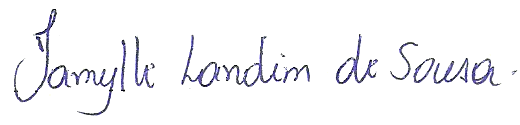 Jamylle Landim de Sousa.